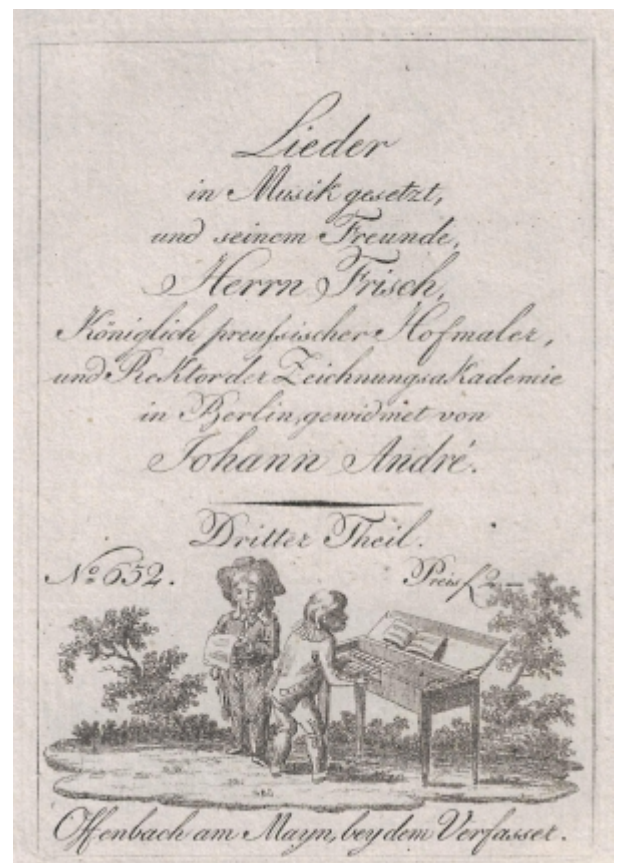 Lieder
in Musik gesetzt,
und seinem Freunde,
Herrn Frisch,
Königlich preußischer Hofmaler,
und Rektor der Zeichnungsakademie
in Berlin, gewidmet von
Johann André.
Dritter Theil.
No 652. Preis f 2. —
Offenbach am Mayn, bey dem Verfasser.